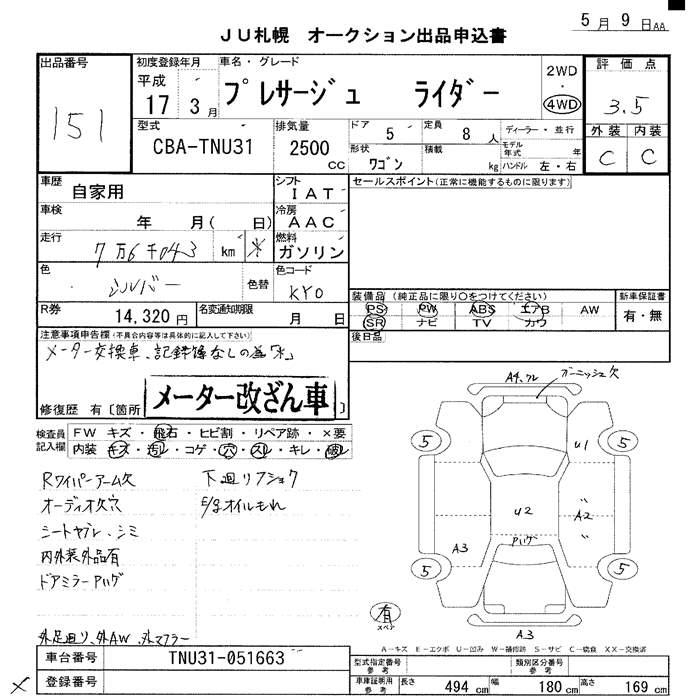 5月9日AA
JU札幌 オークション出品申込書
出品番号
151
初度登録年月
平成
17 3月
車名・グレード
プレサージュ ライダー
2WD
・
4WD
評価点
3.5
外装 内装
C C
型式
CBA-TNU31
排気量
2500
CC
ドア
5
定員
8人
形状
ワゴン
積載
kg
ディーラー・並行
モデル年式 年
ハンドル 左・右
車歴
自家用
シフト
IAT
セールスポイント(正常に機能するものに限ります)
車検
年 月( 日)
冷房
AAC
走行
7万6千043 km ※
燃料
ガソリン
色
シルバー
色替
色コード
KY0
R券
14,320円
名変通知期限
月 日
装備品(純正品に限り○をつけてください)
PS PW ABS エアB AW
SR ナビ TV カワ
新車保証書
有・無
後日品
注意事項申告欄(不具合内容等は具体的に記入して下さい)
メーター交換車、記録簿なしの為「※」
メーター改ざん車
修復歴 有〔箇所 〕
検査員記入欄
FW キズ・飛石・ヒビ割・リペア跡・×要
内装 キズ・汚レ・コゲ・穴・スレ・キレ・破レ
Rワイパーアーム欠
オーディオ欠穴
シートヤブレ、シミ
内外装外品有
ドアミラーPハゲ
外足廻り、外AW、外マフラー
下廻りフショク
E/gオイルもれ
A4,ワレ
ガーニッシュ欠
5
5
U1
U2
A2
Pハゲ
A3
5
5
有
スペア
A3
A-キズ E-エクボ U-凹み W-補修跡 S-サビ C-腐食 XX-交換済
車台番号
TNU31-051663
登録番号
型式指定番号
参考
類別区分番号
参考
車庫証明用
参考
長さ 494cm
幅 180cm
高さ 169cm